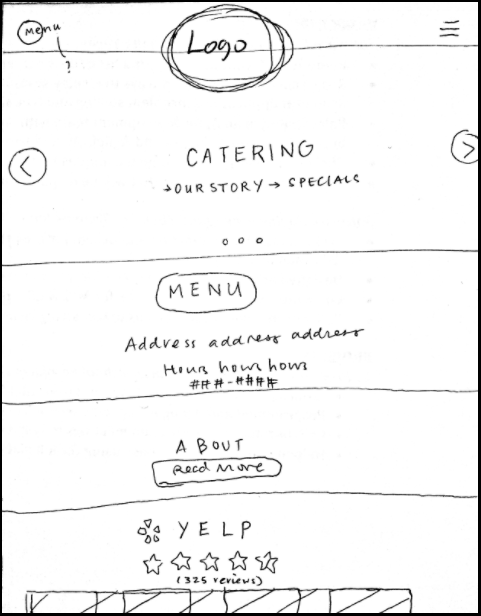 Menu
?
Logo
<
>
CATERING
→OUR STORY → SPECIALS
MENU
Address address address
Hours hours hours
###-####
ABOUT
Read More
YELP
(325 reviews)